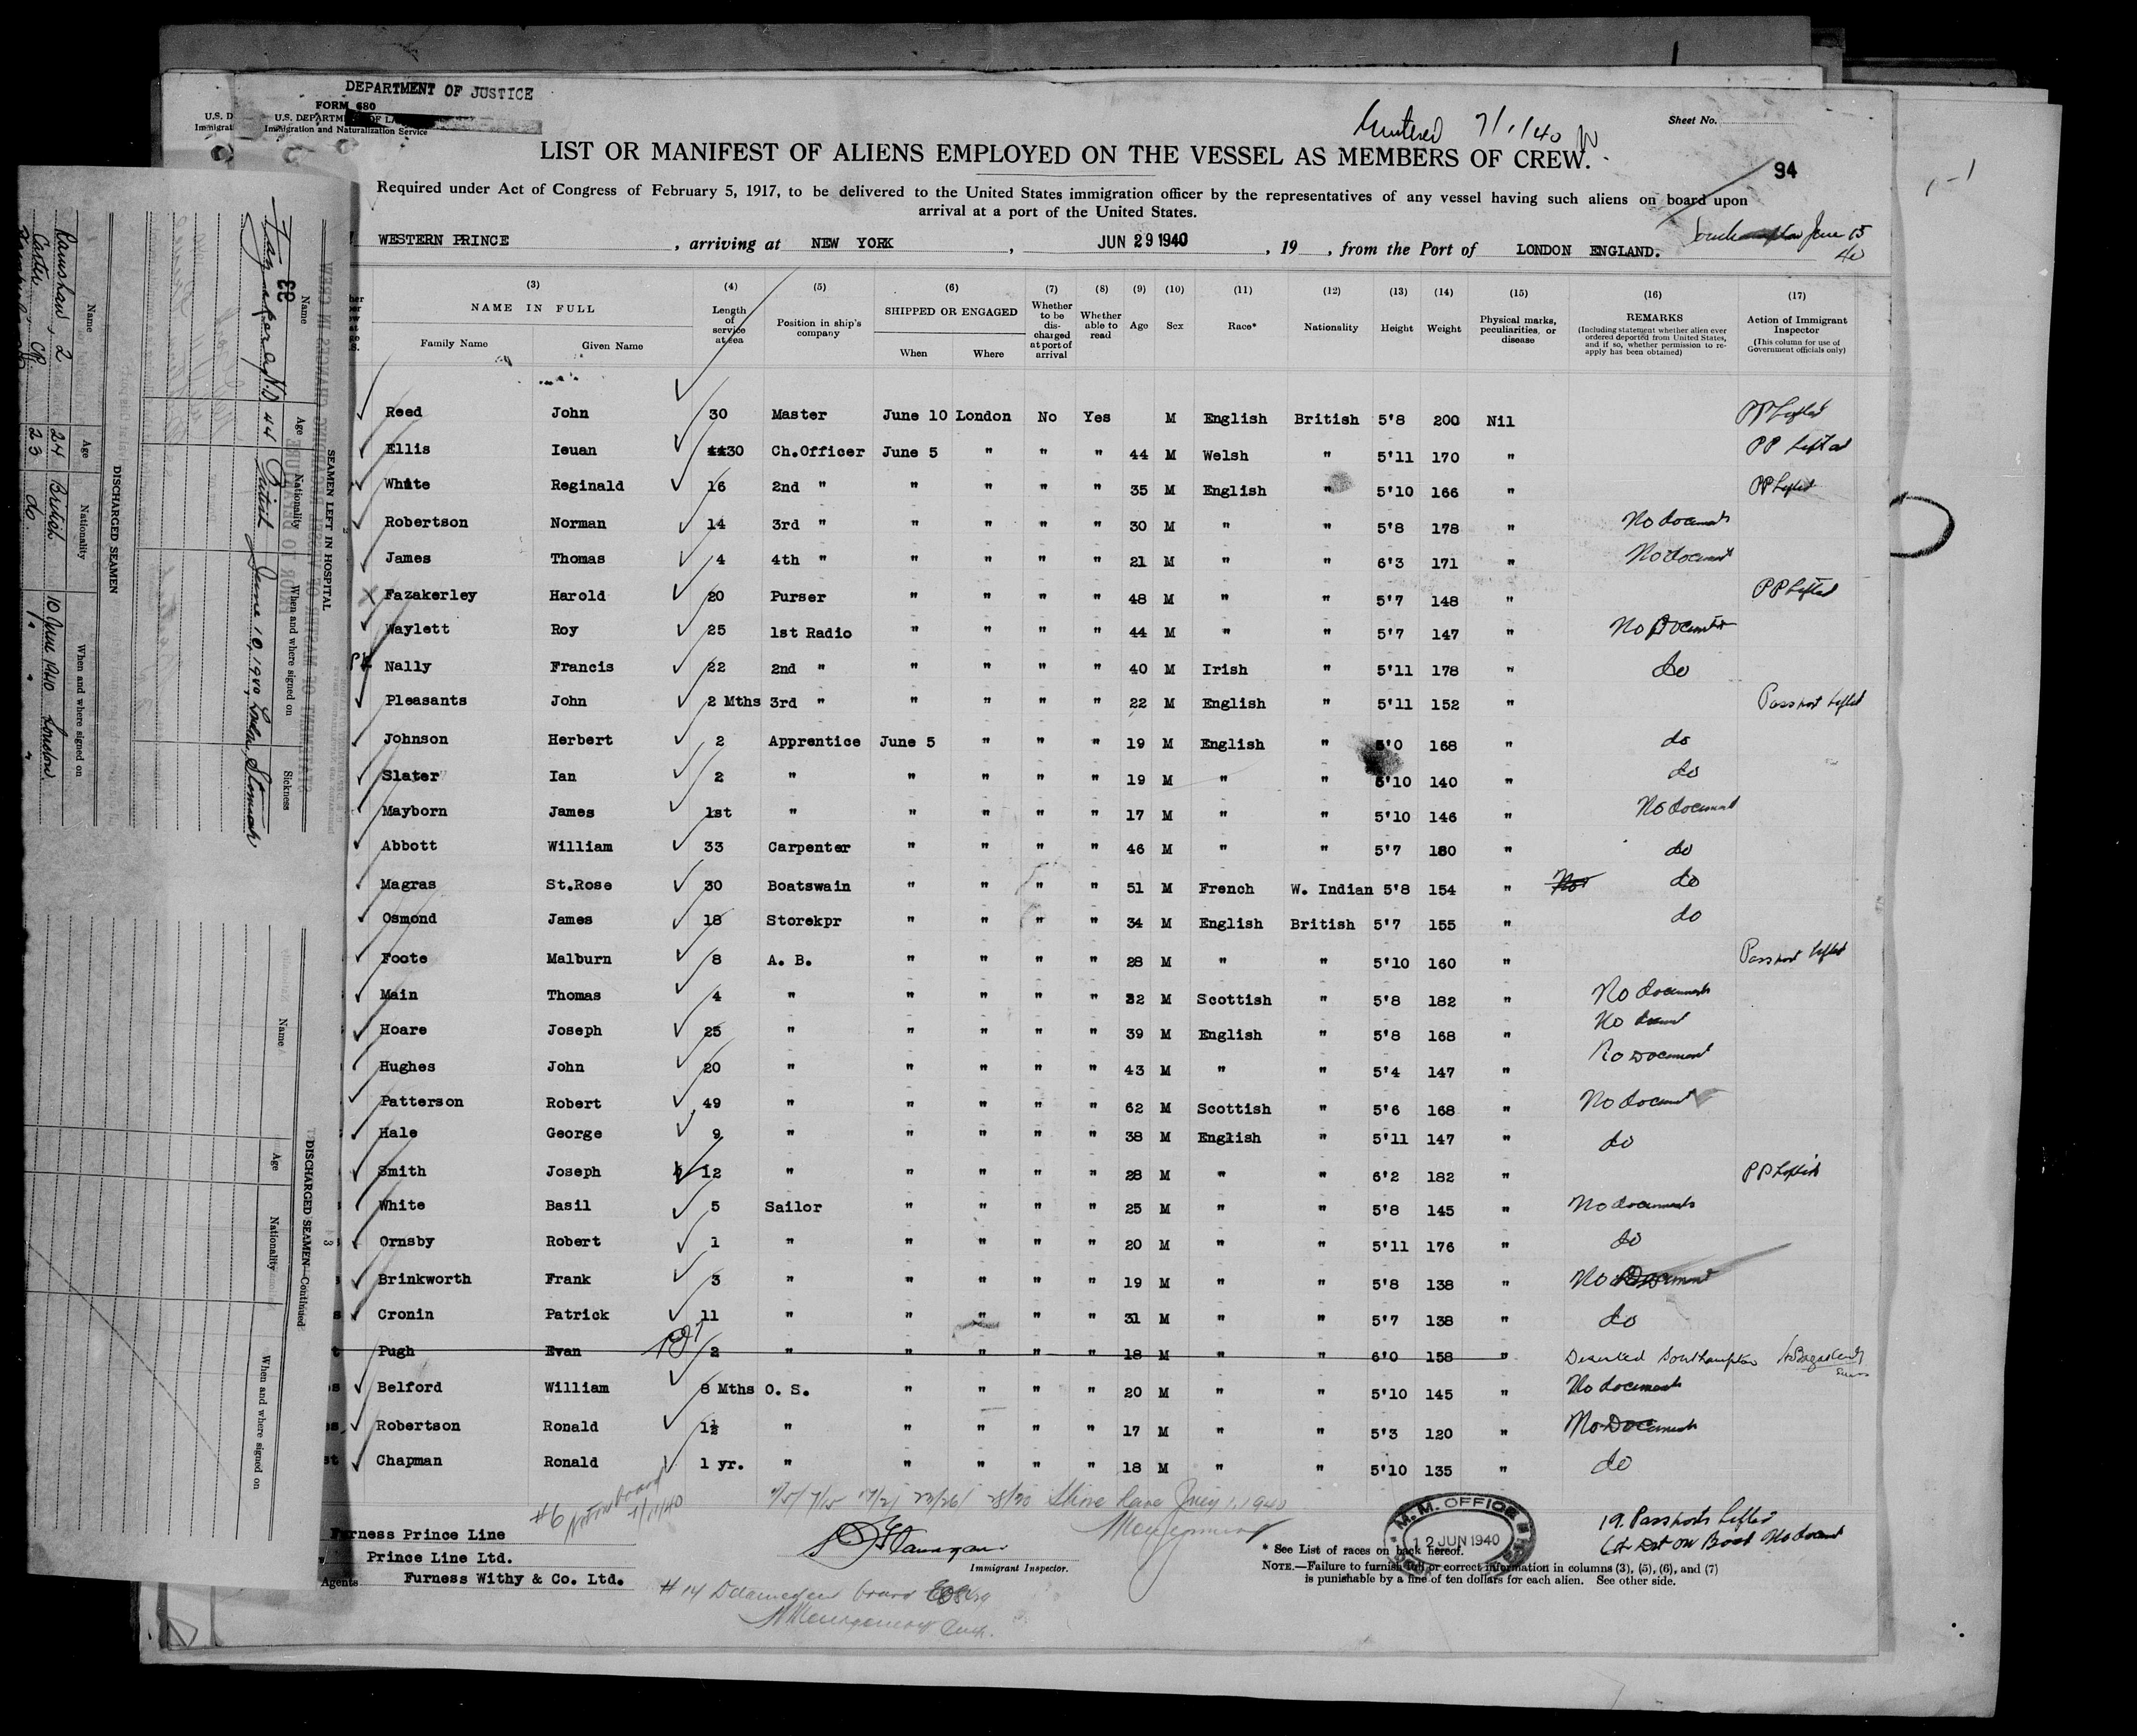 DEPARTMENT OF JUSTICE
FORM 680
U.S. D
U.S. DEPARTMENT OF LA
Immigrat
Immigration and Naturalization Service
Entered 7/1/40
Sheet No.
LIST OR MANIFEST OF ALIENS EMPLOYED ON THE VESSEL AS MEMBERS OF CREW.
94
Required under Act of Congress of February 5, 1917, to be delivered to the United States immigration officer by the representatives of any vessel having such aliens on board upon
arrival at a port of the United States.
WESTERN PRINCE , arriving at NEW YORK , JUN 29 1940 , 19 , from the Port of LONDON ENGLAND. Southampton June 15
40
(3) (4) (5) (6) (7) (8) (9) (10) (11) (12) (13) (14) (15) (16) (17)
NAME IN FULL Length of service at sea Position in ship's company SHIPPED OR ENGAGED Whether to be discharged at port of arrival Whether able to read Age Sex Race* Nationality Height Weight Physical marks, peculiarities, or disease REMARKS (Including statement whether alien ever ordered deported from United States, and if so, whether permission to reapply has been obtained) Action of Immigrant Inspector (This column for use of Government officials only)
Family Name Given Name When Where
Reed John 30 Master June 10 London No Yes M English British 5'8 200 Nil PP Lifted
Ellis Ieuan 4430 Ch.Officer June 5 " " " 44 M Welsh " 5'11 170 " PP Lifted
White Reginald 16 2nd " " " " " 35 M English " 5'10 166 " PP Lifted
Robertson Norman 14 3rd " " " " " 30 M " " 5'8 178 " No documents
James Thomas 4 4th " " " " " 21 M " " 6'3 171 " No document
Fazakerley Harold 20 Purser " " " " 48 M " " 5'7 148 " PP Lifted
Waylett Roy 25 1st Radio " " " " 44 M " " 5'7 147 " No Documents
Nally Francis 22 2nd " " " " " 40 M Irish " 5'11 178 " do
Pleasants John 2 Mths 3rd " " " " " 22 M English " 5'11 152 " Passport Lifted
Johnson Herbert 2 Apprentice June 5 " " " 19 M English " 5'0 168 " do
Slater Ian 2 " " " " " 19 M " " 5'10 140 " do
Mayborn James 1st " " " " " 17 M " " 5'10 146 " No document
Abbott William 33 Carpenter " " " " 46 M " " 5'7 180 " do
Magras St.Rose 30 Boatswain " " " " 51 M French W. Indian 5'8 154 " do
Osmond James 18 Storekpr " " " " 34 M English British 5'7 155 " do
Foote Malburn 8 A. B. " " " " 28 M " " 5'10 160 " Passport Lifted
Main Thomas 4 " " " " " 32 M Scottish " 5'8 182 " No documents
Hoare Joseph 25 " " " " " 39 M English " 5'8 168 "
Hughes John 20 " " " " " 43 M " " 5'4 147 " No Document
Patterson Robert 49 " " " " " 62 M Scottish " 5'6 168 " No document
Hale George 9 " " " " " 38 M English " 5'11 147 " do
Smith Joseph 12 " " " " " 28 M " " 6'2 182 " PP Lifted
White Basil 5 Sailor " " " " 25 M " " 5'8 145 " No documents
Ornsby Robert 1 " " " " " 20 M " " 5'11 176 " do
Brinkworth Frank 3 " " " " " 19 M " " 5'8 138 " No Document
Cronin Patrick 11 " " " " " 31 M " " 5'7 138 " do
Pugh Evan 2 " " " " " 18 M " " 6'0 158 " Deserted Southampton
Belford William 8 Mths O. S. " " " " 20 M " " 5'10 145 " No documents
Robertson Ronald 1½ " " " " " 17 M " " 5'3 120 " No Documents
Chapman Ronald 1 yr. " " " " " 18 M " " 5'10 135 " do
Shore leave July 1, 1940
Montgomery
#6 Not on board 7/1/40
Furness Prince Line
Prince Line Ltd.
Agents Furness Withy & Co. Ltd.
Immigrant Inspector.
M.M. OFFICE
12 JUN 1940
19. Passports Lifted
* See List of races on back hereof.
NOTE.—Failure to furnish full or correct information in columns (3), (5), (6), and (7)
is punishable by a fine of ten dollars for each alien. See other side.
#14 Detained on board
SEAMEN LEFT IN HOSPITAL
Name Age Nationality When and where signed on Sickness
33
44 British June 10, 1940, London Stomach
DISCHARGED SEAMEN
Name Age Nationality When and where signed on
Ramshaw, 2 24 British 10 June 1940 London
Carter, C.R. 23 do " " "
DISCHARGED SEAMEN—Continued
Name Age Nationality When and where signed on